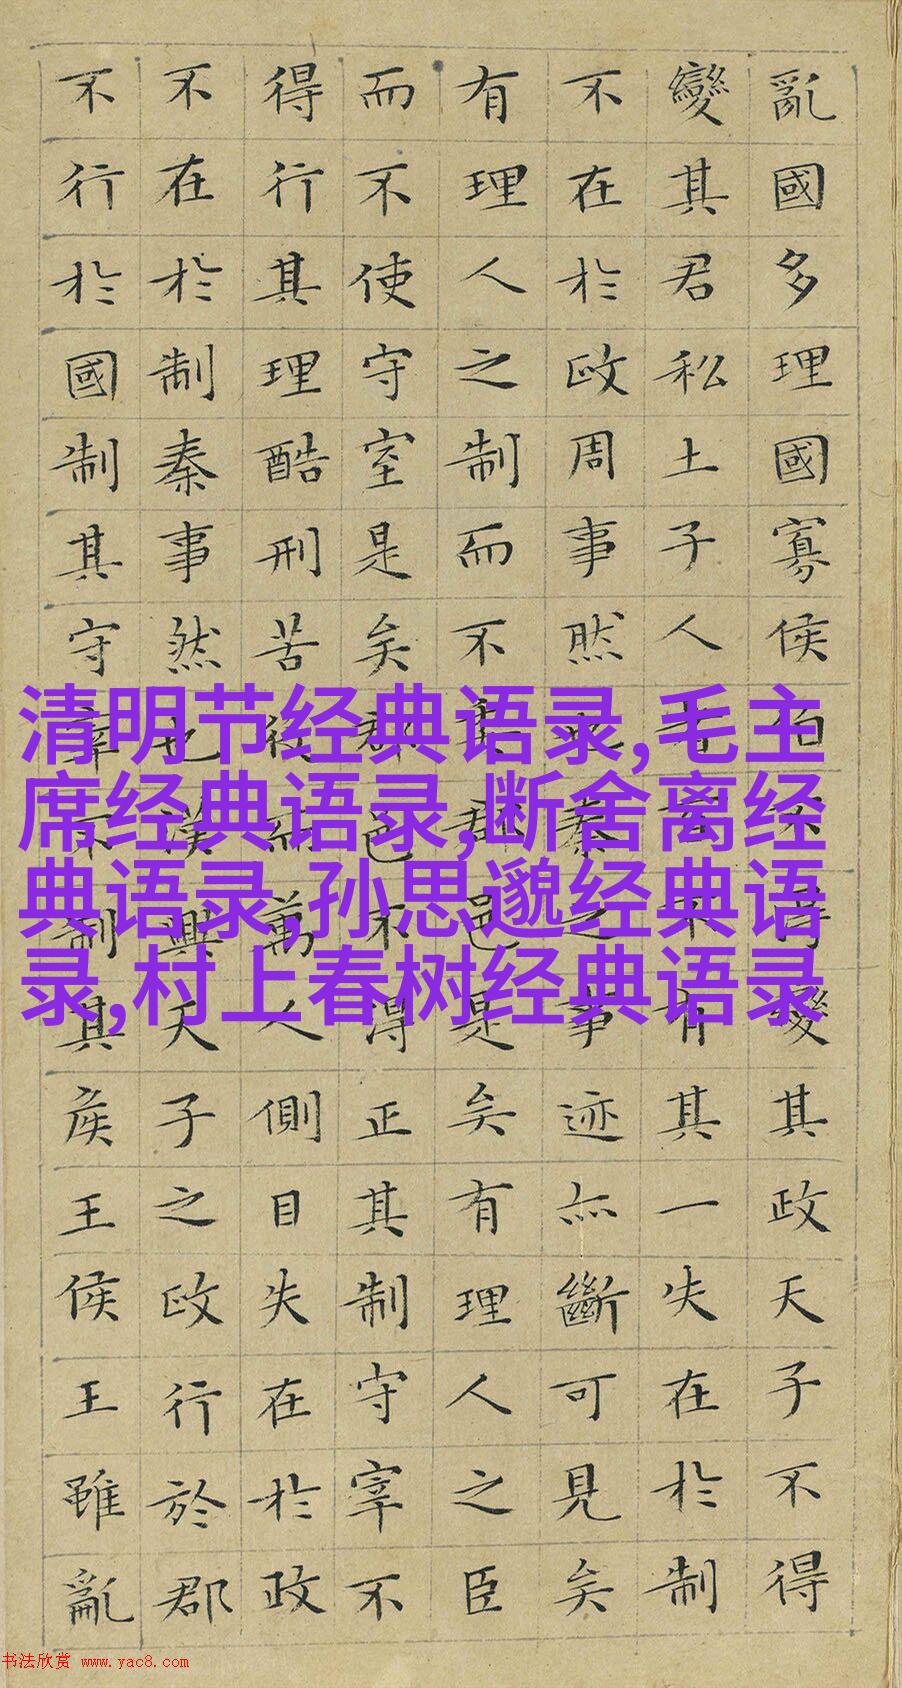 亂國多理國寡侯伯不得變其政天子不得
變其君私土子人者百不有其一失在於制
不在於政周事然也秦之事迹亦斷可見矣
有理人之制而不委郡邑是矣有理人之臣
而不使守宰是矣郡邑不得正其制守宰不
得行其理酷刑苦役而萬人側目失在於政
不在於制秦事然也漢興天子之政行於郡
不行於國制其守宰不制其侯王侯王雖亂
清明节经典语录,毛主
席经典语录,断舍离经
典语录,孙思邈经典语
录,村上春树经典语录
书法欣赏 www.yac8.com